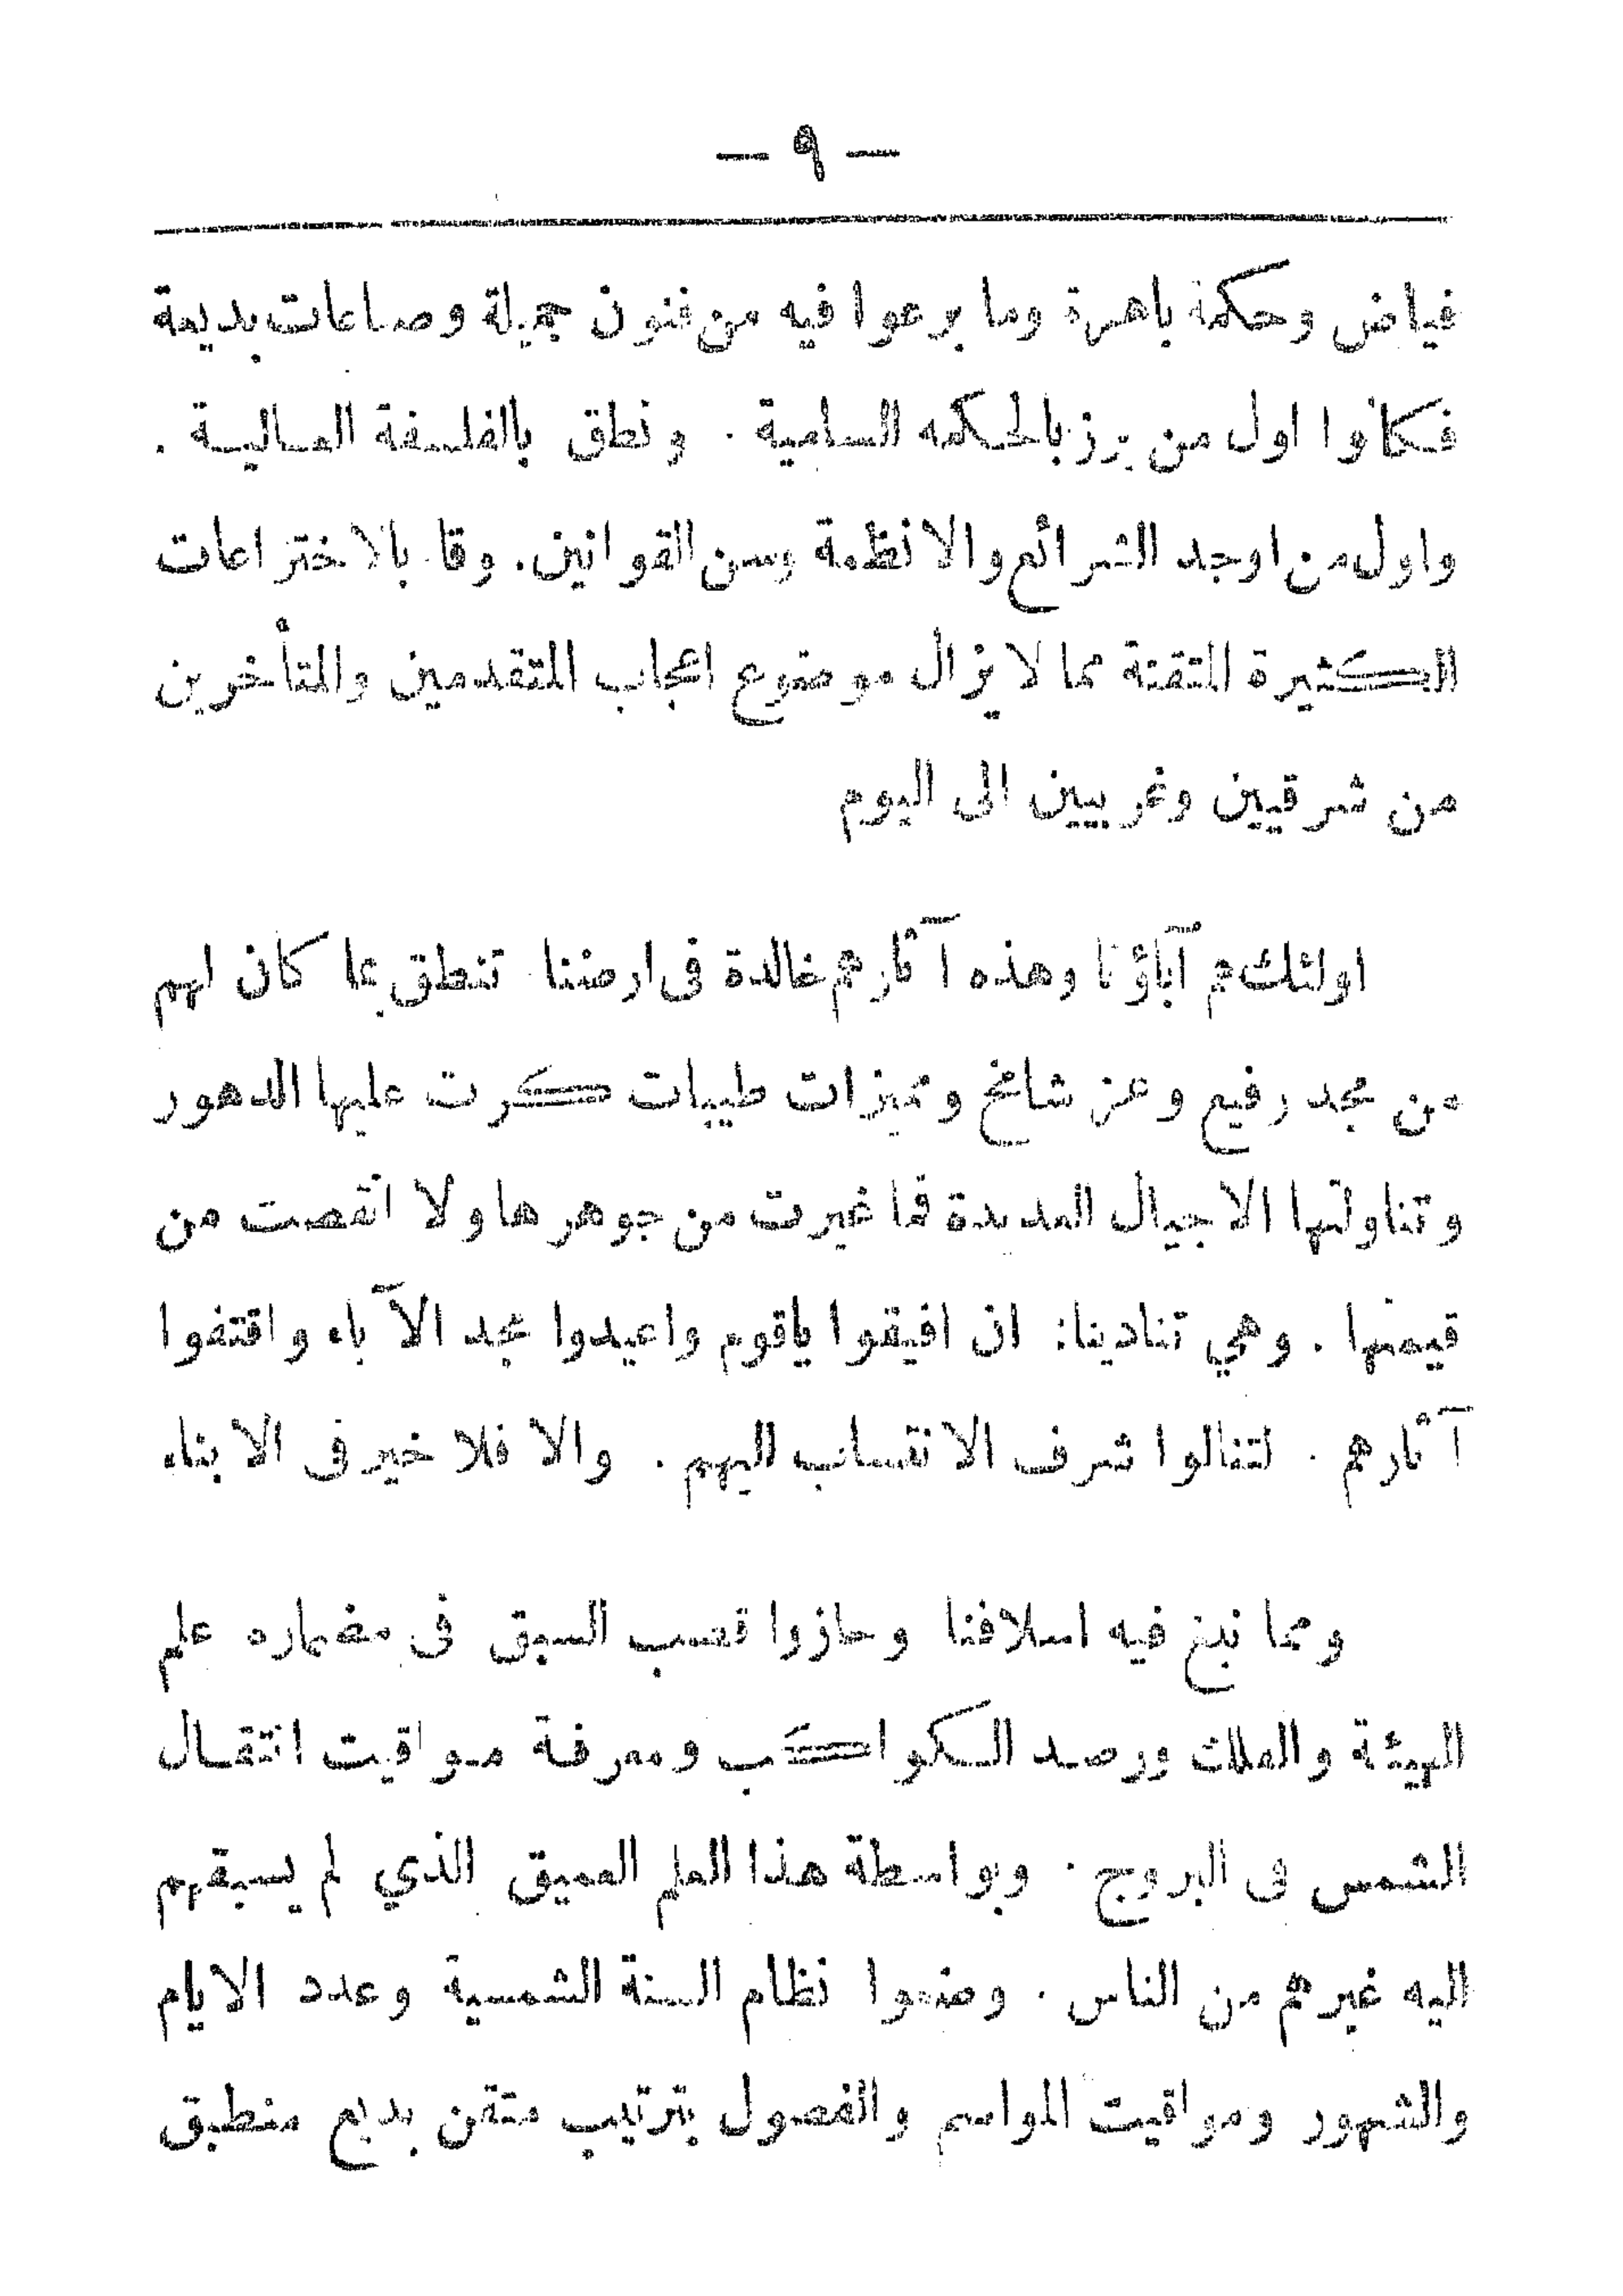 — ٩ —
فياض وحكمة باهرة وما برعوا فيه من فنون جميلة وصناعات بديعة
فكانوا اول من برز بالحكمه السامية . ونطق بالفلسفة العالية .
واول من اوجد الشرائع والانظمة وسن القوانين . وقا بالاختراعات
الكثيرة المتقنة مما لا يزال موضوع اعجاب المتقدمين والمتأخرين
من شرقيين وغربيين الى اليوم
اولئك هم آباؤنا وهذه آثارهم خالدة فى ارضنا تنطق بما كان لهم
من مجد رفيع وعز شامخ ومميزات طيبات كرت عليها الدهور
وتناولتها الاجيال العديدة فما غيرت من جوهرها ولا انقصت من
قيمتها . وهي تنادينا: ان افيقوا ياقوم واعيدوا مجد الآباء واقتفوا
آثارهم . لتنالوا شرف الانتساب اليهم . والا فلا خير فى الابناء
ومما نبغ فيه اسلافنا وحازوا قصب السبق فى مضماره علم
الهيئة والفلك ورصد الكواكب ومعرفة مواقيت انتقال
الشمس فى البروج . وبواسطة هذا العلم العميق الذي لم يسبقهم
اليه غيرهم من الناس . وضعوا نظام السنة الشمسية وعدد الايام
والشهور ومواقيت المواسم والفصول بترتيب متقن بديع منطبق